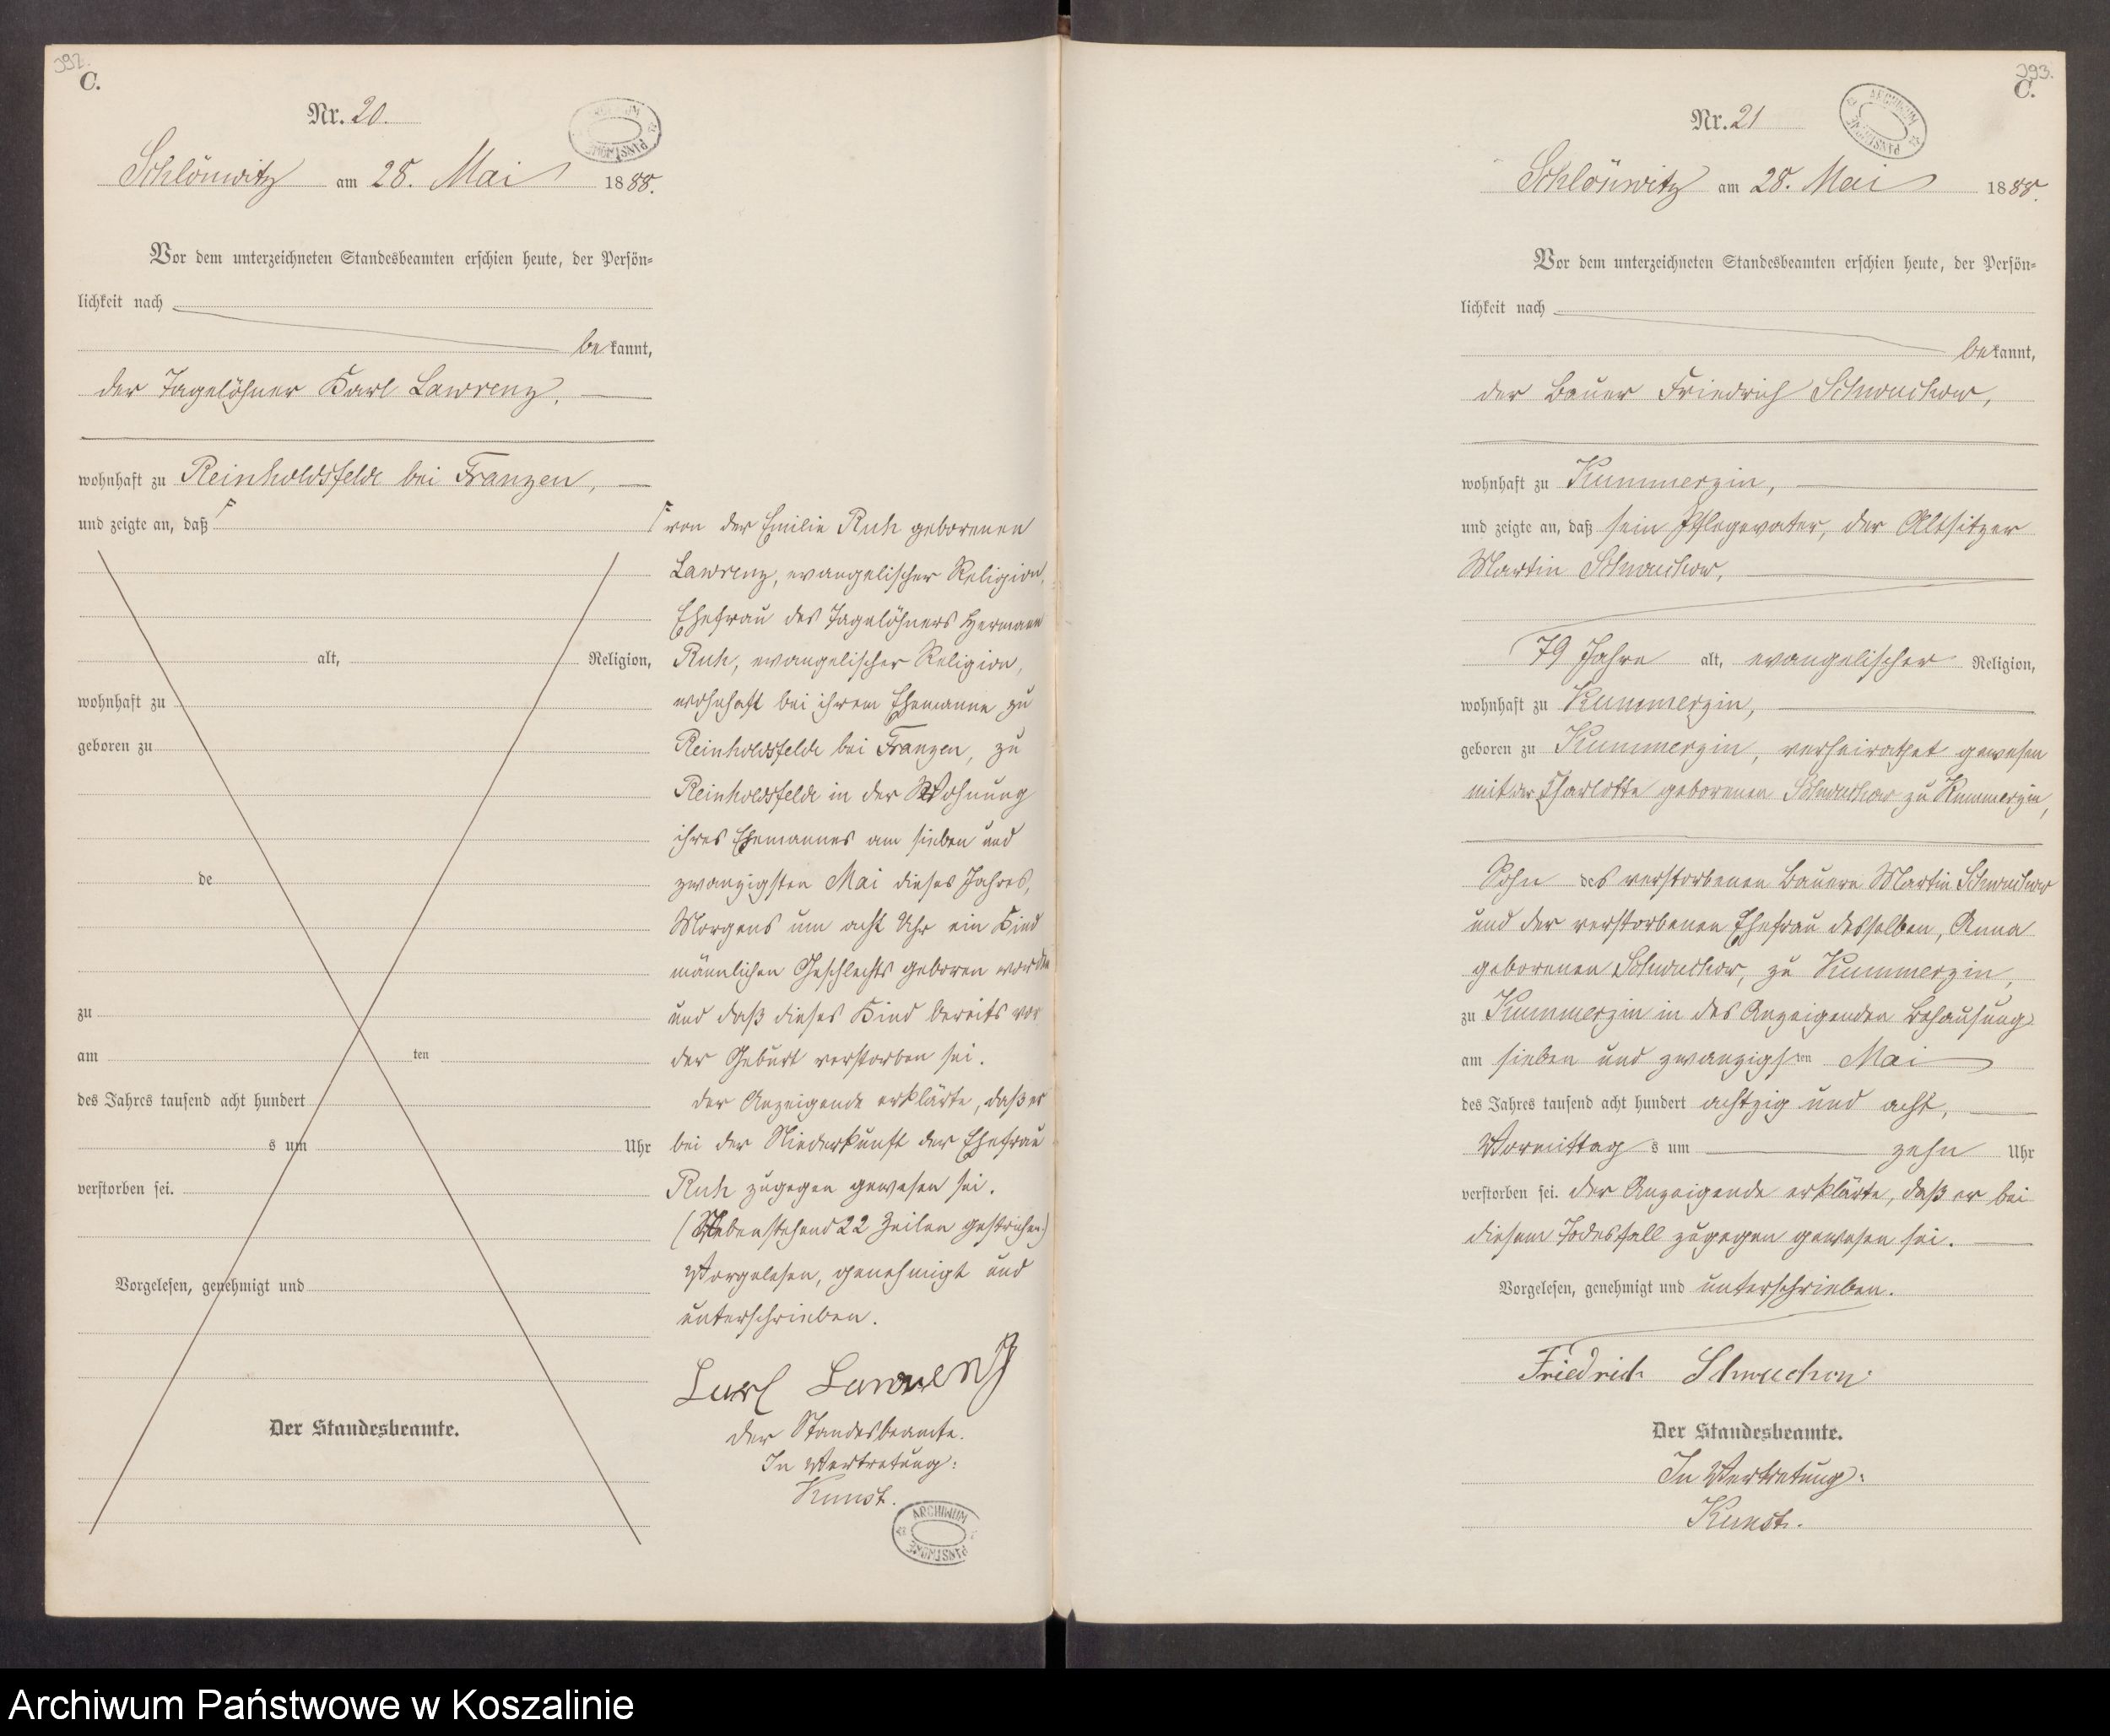 392.
C.
Nr. 20.
ARCHIWUM PAŃSTWOWE
Schlönwitz am 28. Mai 1888.
Vor dem unterzeichneten Standesbeamten erschien heute, der Persön-
lichkeit nach
bekannt,
der Tagelöhner Karl Lawrenz,
wohnhaft zu Reinholdsfelde bei Franzen,
und zeigte an, daß
alt, Religion,
wohnhaft zu
geboren zu
de
zu
am ten
des Jahres tausend acht hundert
s um Uhr
verstorben sei.
Vorgelesen, genehmigt und
Der Standesbeamte.
von der Emilie Ruh geborenen
Lawrenz, evangelischer Religion,
Ehefrau des Tagelöhners Hermann
Ruh, evangelischer Religion,
wohnhaft bei ihrem Ehemanne zu
Reinholdsfelde bei Franzen, zu
Reinholdsfelde in der Wohnung
ihres Ehemannes am sieben und
zwanzigsten Mai dieses Jahres,
Morgens um acht Uhr ein Kind
männlichen Geschlechts geboren worden
und daß dieses Kind bereits vor
der Geburt verstorben sei.
Der Anzeigende erklärte, daß er
bei der Niederkunft der Ehefrau
Ruh zugegen gewesen sei.
(Nebenstehend 22 Zeilen gestrichen.)
Vorgelesen, genehmigt und
unterschrieben.
Karl Lawrenz
Der Standesbeamte.
In Vertretung:
Kunst.
ARCHIWUM PAŃSTWOWE
393.
C.
Nr. 21
ARCHIWUM PAŃSTWOWE
Schlönwitz am 28. Mai 1888.
Vor dem unterzeichneten Standesbeamten erschien heute, der Persön-
lichkeit nach
bekannt,
der Bauer Friedrich Schwuchow,
wohnhaft zu Kummerzin,
und zeigte an, daß sein Pflegevater, der Altsitzer
Martin Schwuchow,
79 Jahre alt, evangelischer Religion,
wohnhaft zu Kummerzin,
geboren zu Kummerzin, verheirathet gewesen
mit der Charlotte geborenen Schwuchow zu Kummerzin,
Sohn des verstorbenen Bauern Martin Schwuchow
und der verstorbenen Ehefrau desselben, Anna
geborenen Schwuchow, zu Kummerzin,
zu Kummerzin in des Anzeigenden Behausung
am sieben und zwanzigsten Mai
des Jahres tausend acht hundert achtzig und acht,
Vormittags um zehn Uhr
verstorben sei. Der Anzeigende erklärte, daß er bei
diesem Todesfall zugegen gewesen sei.
Vorgelesen, genehmigt und unterschrieben.
Friedrich Schwuchow.
Der Standesbeamte.
In Vertretung:
Kunst.
Archiwum Państwowe w Koszalinie